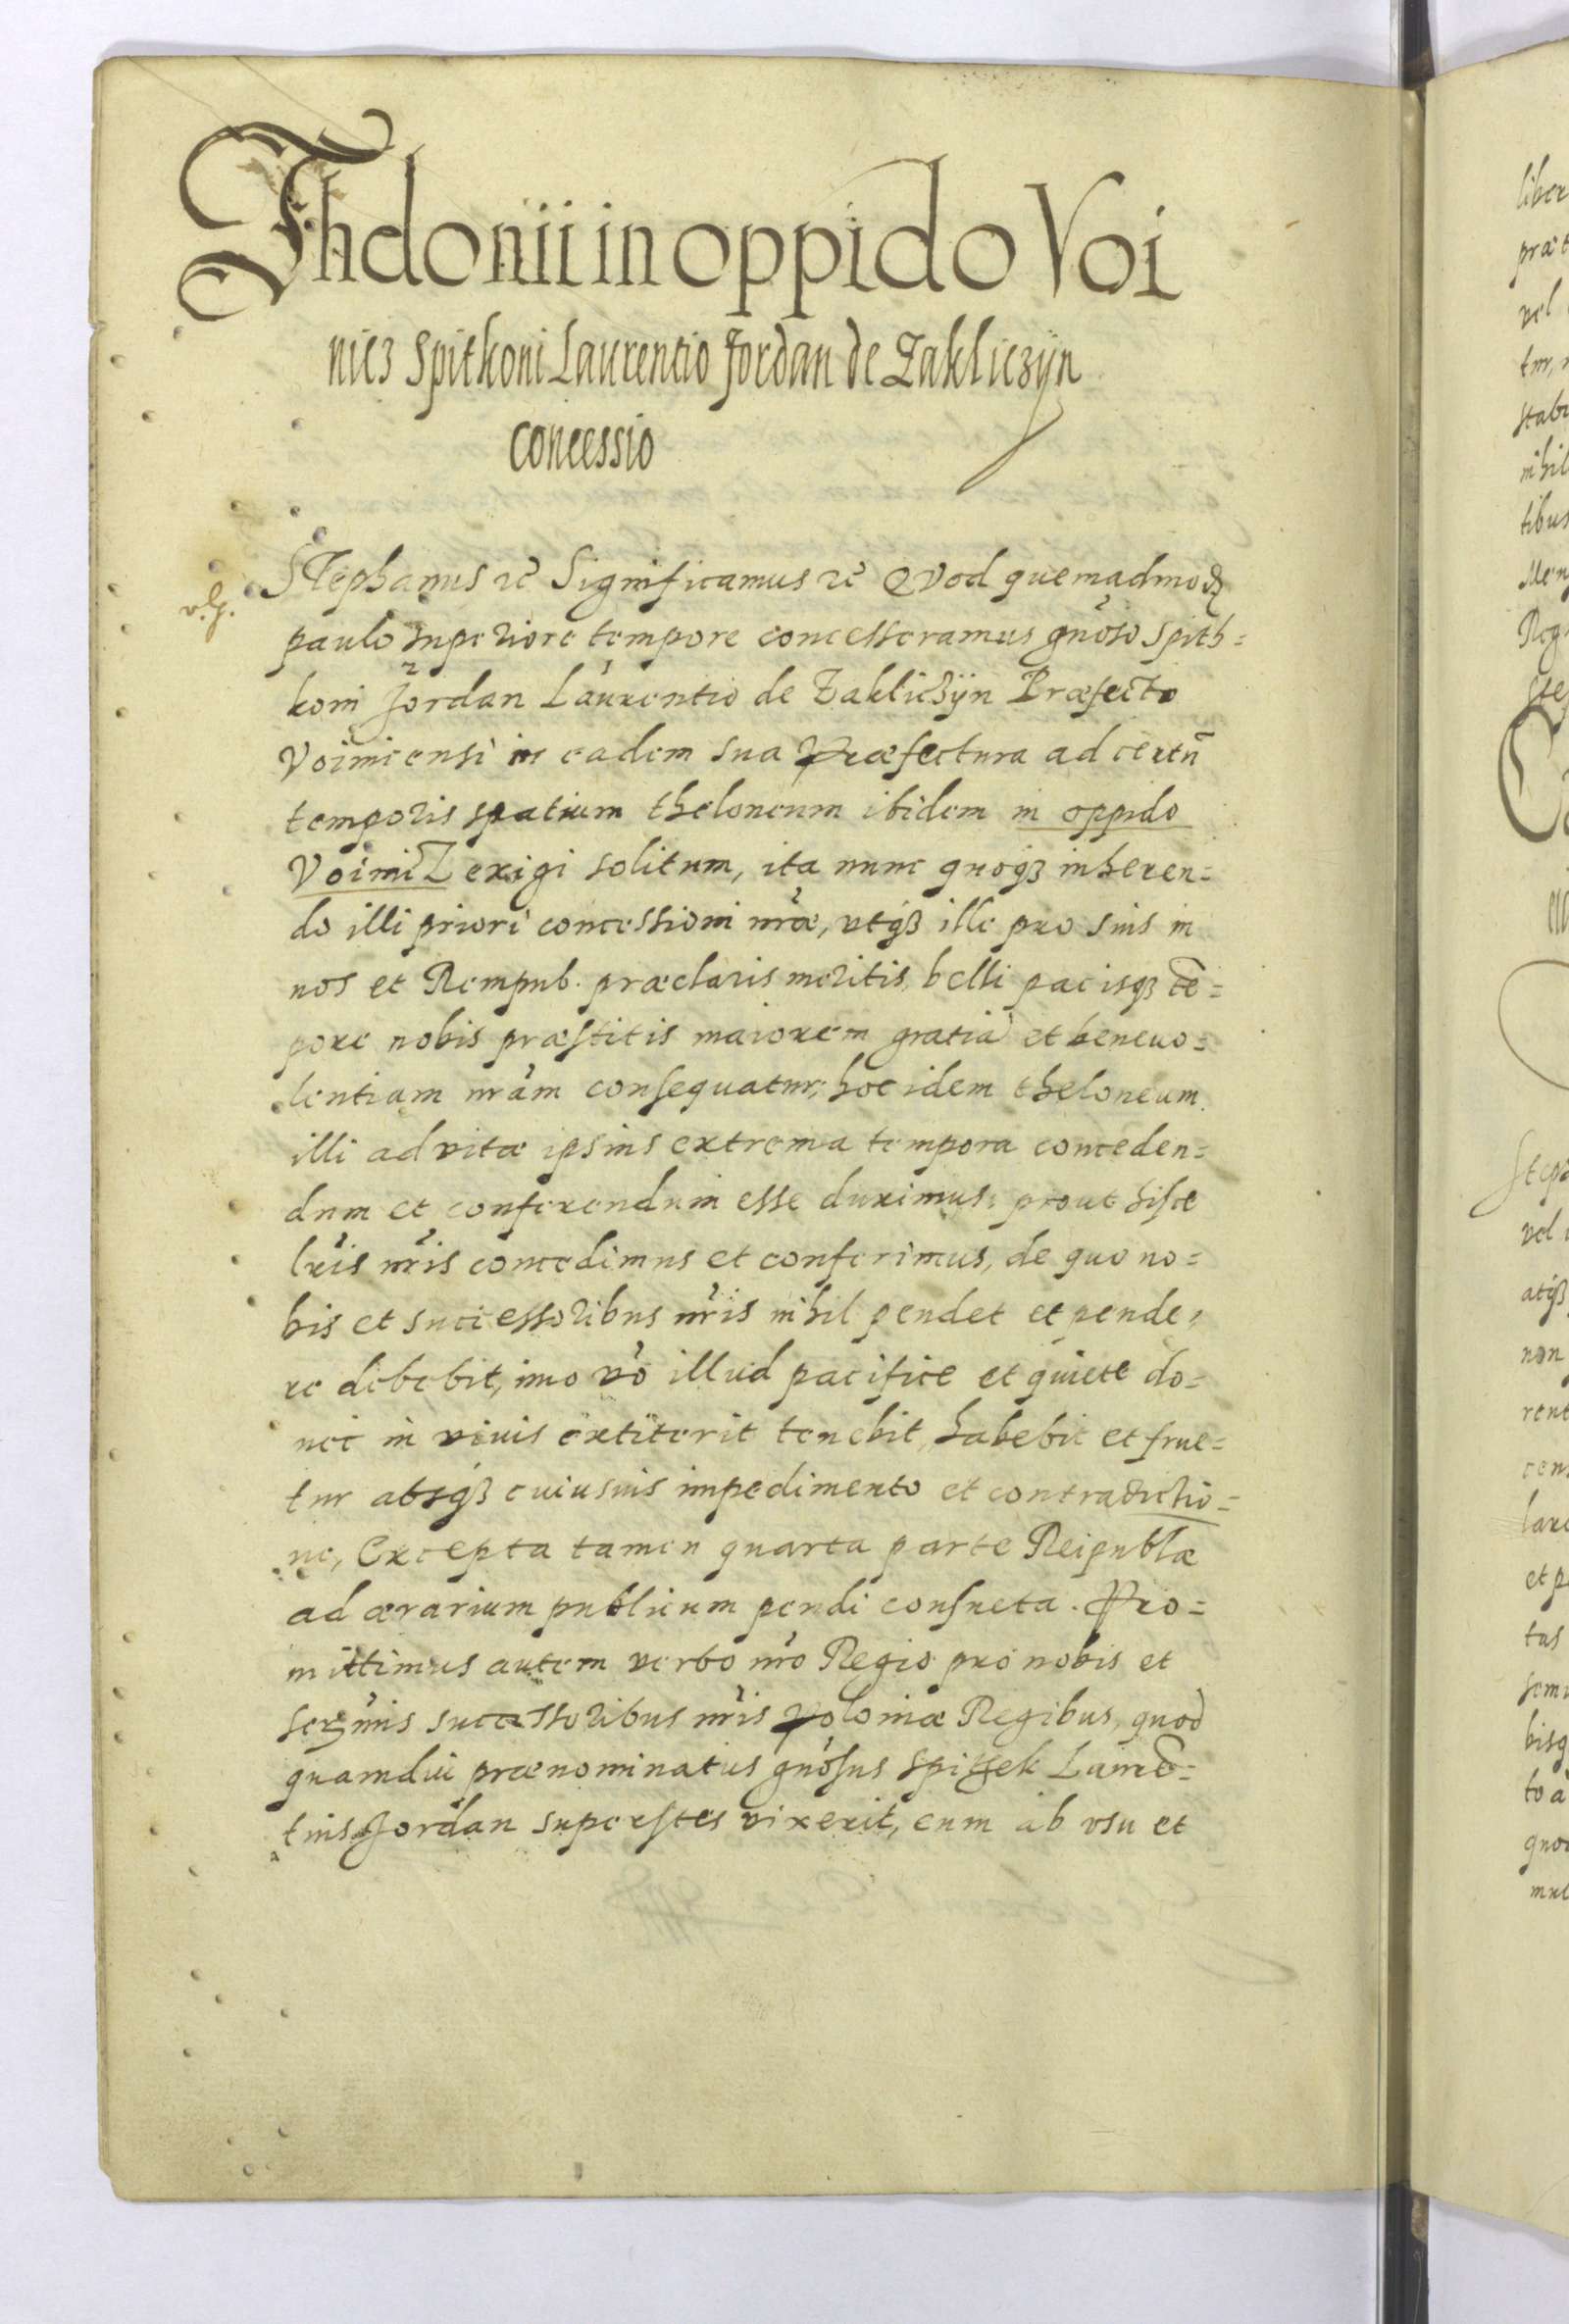 Thelonii in oppido Voi
nicz Spitkoni Laurentio Jordan de Zakliczÿn
concessio
Stephanus &c̃ Significamus &c̃ Qvod quemadmodṽ
paulo superiore tempore concesseramus gnõso Spith=
koni Jordan Laurentio de Zakliczÿn Præfecto
Voinicensi in eadem sua Præfectura ad certũ
temporis spatium theloneum ibidem in oppido
Voinicz exigi solitum, ita nunc quoqꝫ inheren=
do illi priori concessioni nr̃æ, vtqꝫ ille pro suis in
nos et Rempub. præclaris meritis, belli pacisqꝫ tẽ=
pore nobis præstitis maiorem gratiã et beneuo=
lentiam nr̃am consequatur, hoc idem theloneum
illi ad vitæ ipsius extrema tempora conceden=
dum et conferendum esse duximus: prout hisce
lr̃is nr̃is concedimus et conferimus, de quo no=
bis et successoribus nr̃is nihil pendet et pende=
re debebit, imo vo᷃ illud pacifice et quiete do=
nec in viuis extiterit tenebit, habebit et frue=
tur absqꝫ cuiusuis impedimento et contradictio=
ne, Excepta tamen quarta parte Reipublæ
ad ærarium publicum pendi consueta. Pro=
mittimus autem verbo nr̃o Regio pro nobis et
serm̃is successoribus nr̃is Poloniæ Regibus, quod
quamdiu prænominatus gnõsus Spitek Laurẽ=
tius Jordan superstes vixerit, eum ab vsu et